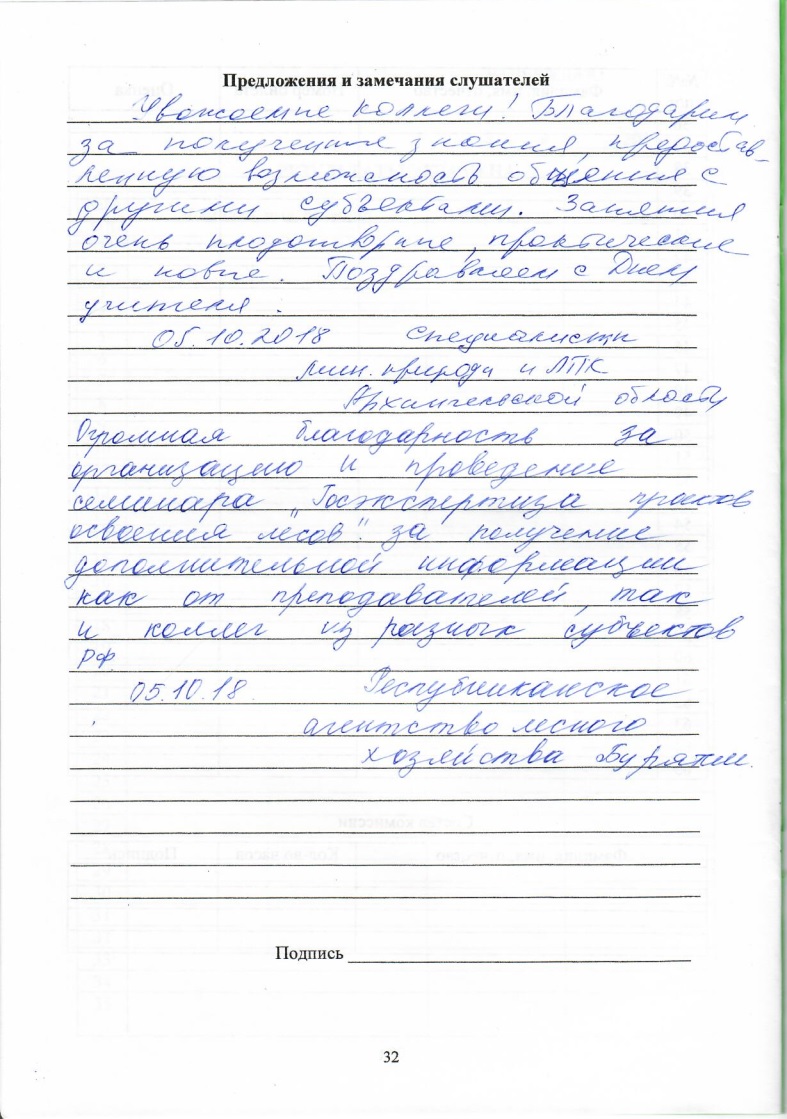 Предложения и замечания слушателей
Уважаемые коллеги! Благодарим
за полученные знания, предостав-
ленную возможность общения с
другими субъектами. Занятия
очень плодотворные, практические
и новые. Поздравляем с Днем
учителя.
05.10.2018 Специалисты
мин. природы и ЛПК
Архангельской области
Огромная благодарность за
организацию и проведение
семинара "Госэкспертиза проектов
освоения лесов" за получение
дополнительной информации
как от преподавателей, так
и коллег из разных субъектов
РФ
05.10.18. Республиканское
агентство лесного
хозяйства Бурятии.
Подпись
32